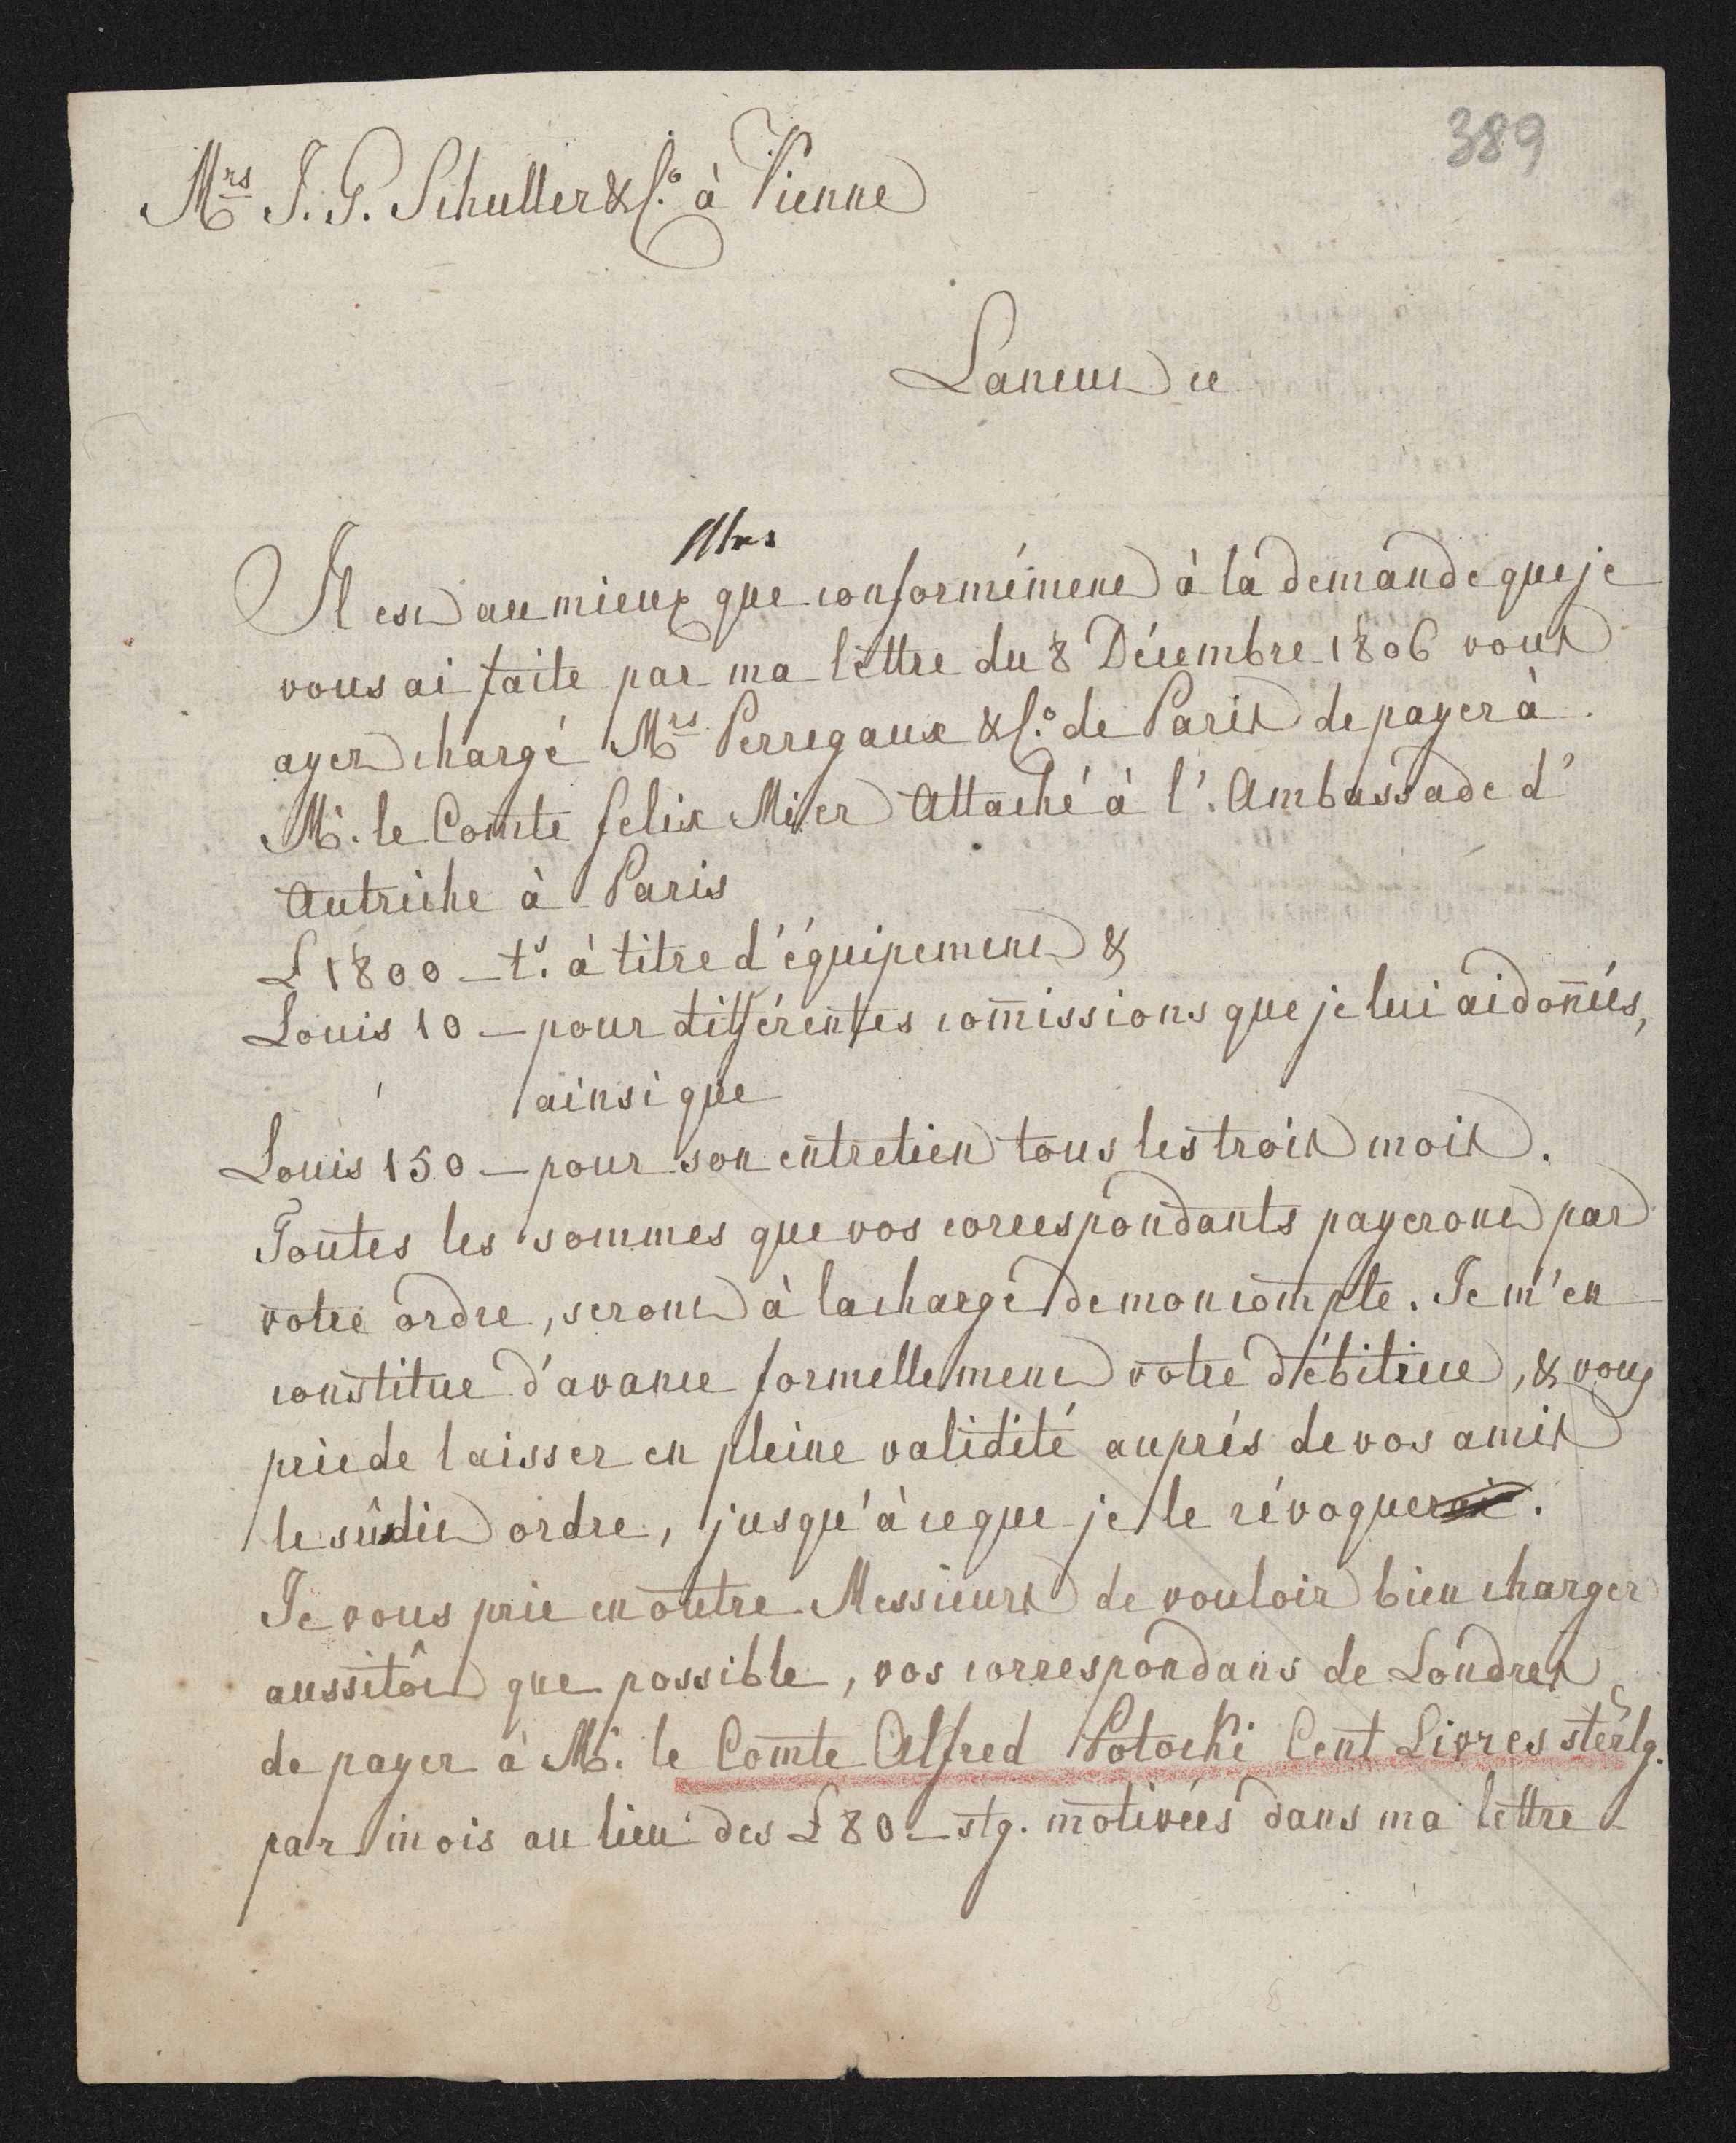 389
Mrs J. G. Schuller & Co. à Vienne
Lancut ce
Mrs
Il est au mieux que conformément à la demande que je
vous ai faite par ma lettre du 8 Décembre 1806 vous
ayez chargé Mrs Perregaux & Co. de Paris de payer à
Mr. le Comte felix Mier Attaché à l'. Ambassade d'
Autriche à Paris
£ 1800 – ts. à titre d'équipement &
Louis 10 – pour différentes com̄issions que je lui ai don̄ées,
ainsi que
Louis 150 – pour son entretien tous les trois mois.
Toutes les sommes que vos correspondants payeront par
votre ordre, seront à la charge de mon compte. Je m'en
constitue d'avance formellement votre débitrice, & vous
prie de laisser en pleine validité auprés de vos amis
le sûsdit ordre, jusqu'à ce que je le révoquerai.
Je vous prie en outre Messieurs de vouloir bien charger
aussitôt que possible, vos correspondans de Londres
de payer à Mr. le Comte Alfred Potocki Cent Livres sterlg.
par mois au lieu des £ 80 – stg. motivées dans ma lettre